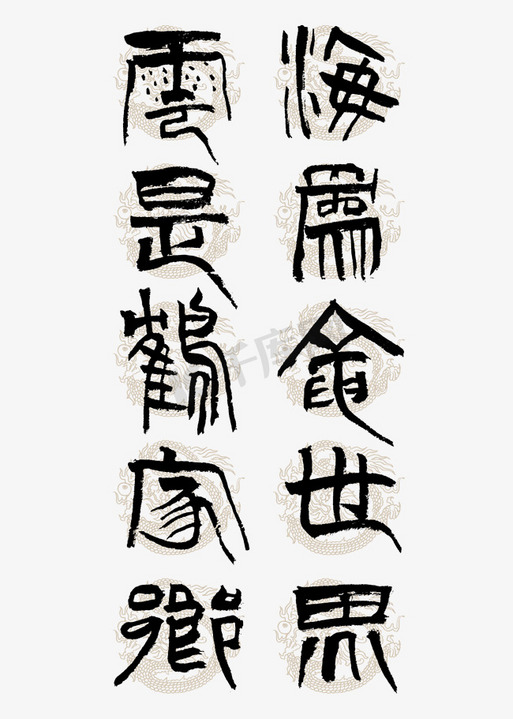 海爲龍世界
雲是鶴家鄉
千库网